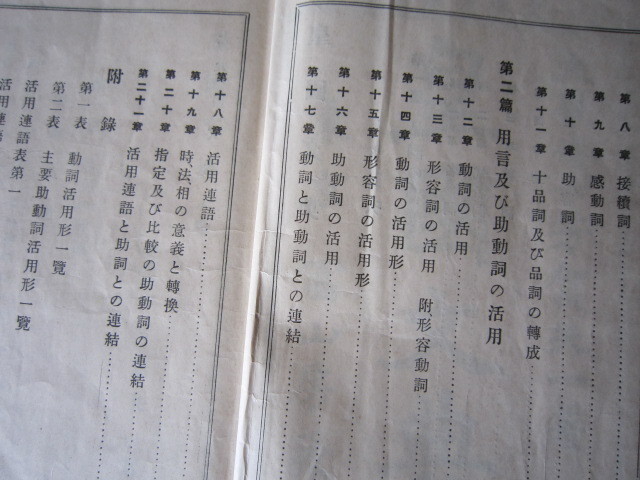 第八章 接續詞
第九章 感動詞
第十章 助詞
第十一章 十品詞及び品詞の轉成
第二篇 用言及び助動詞の活用
第十二章 動詞の活用
第十三章 形容詞の活用 附形容動詞
第十四章 動詞の活用形
第十五章 形容詞の活用形
第十六章 助動詞の活用
第十七章 動詞と助動詞との連結
第十八章 活用連語
第十九章 時法相の意義と轉換
第二十章 指定及び比較の助動詞の連結
第二十一章 活用連語と助詞との連結
附錄
第一表 動詞活用形一覽
第二表 主要助動詞活用形一覽
活用連語表第一
活用連語